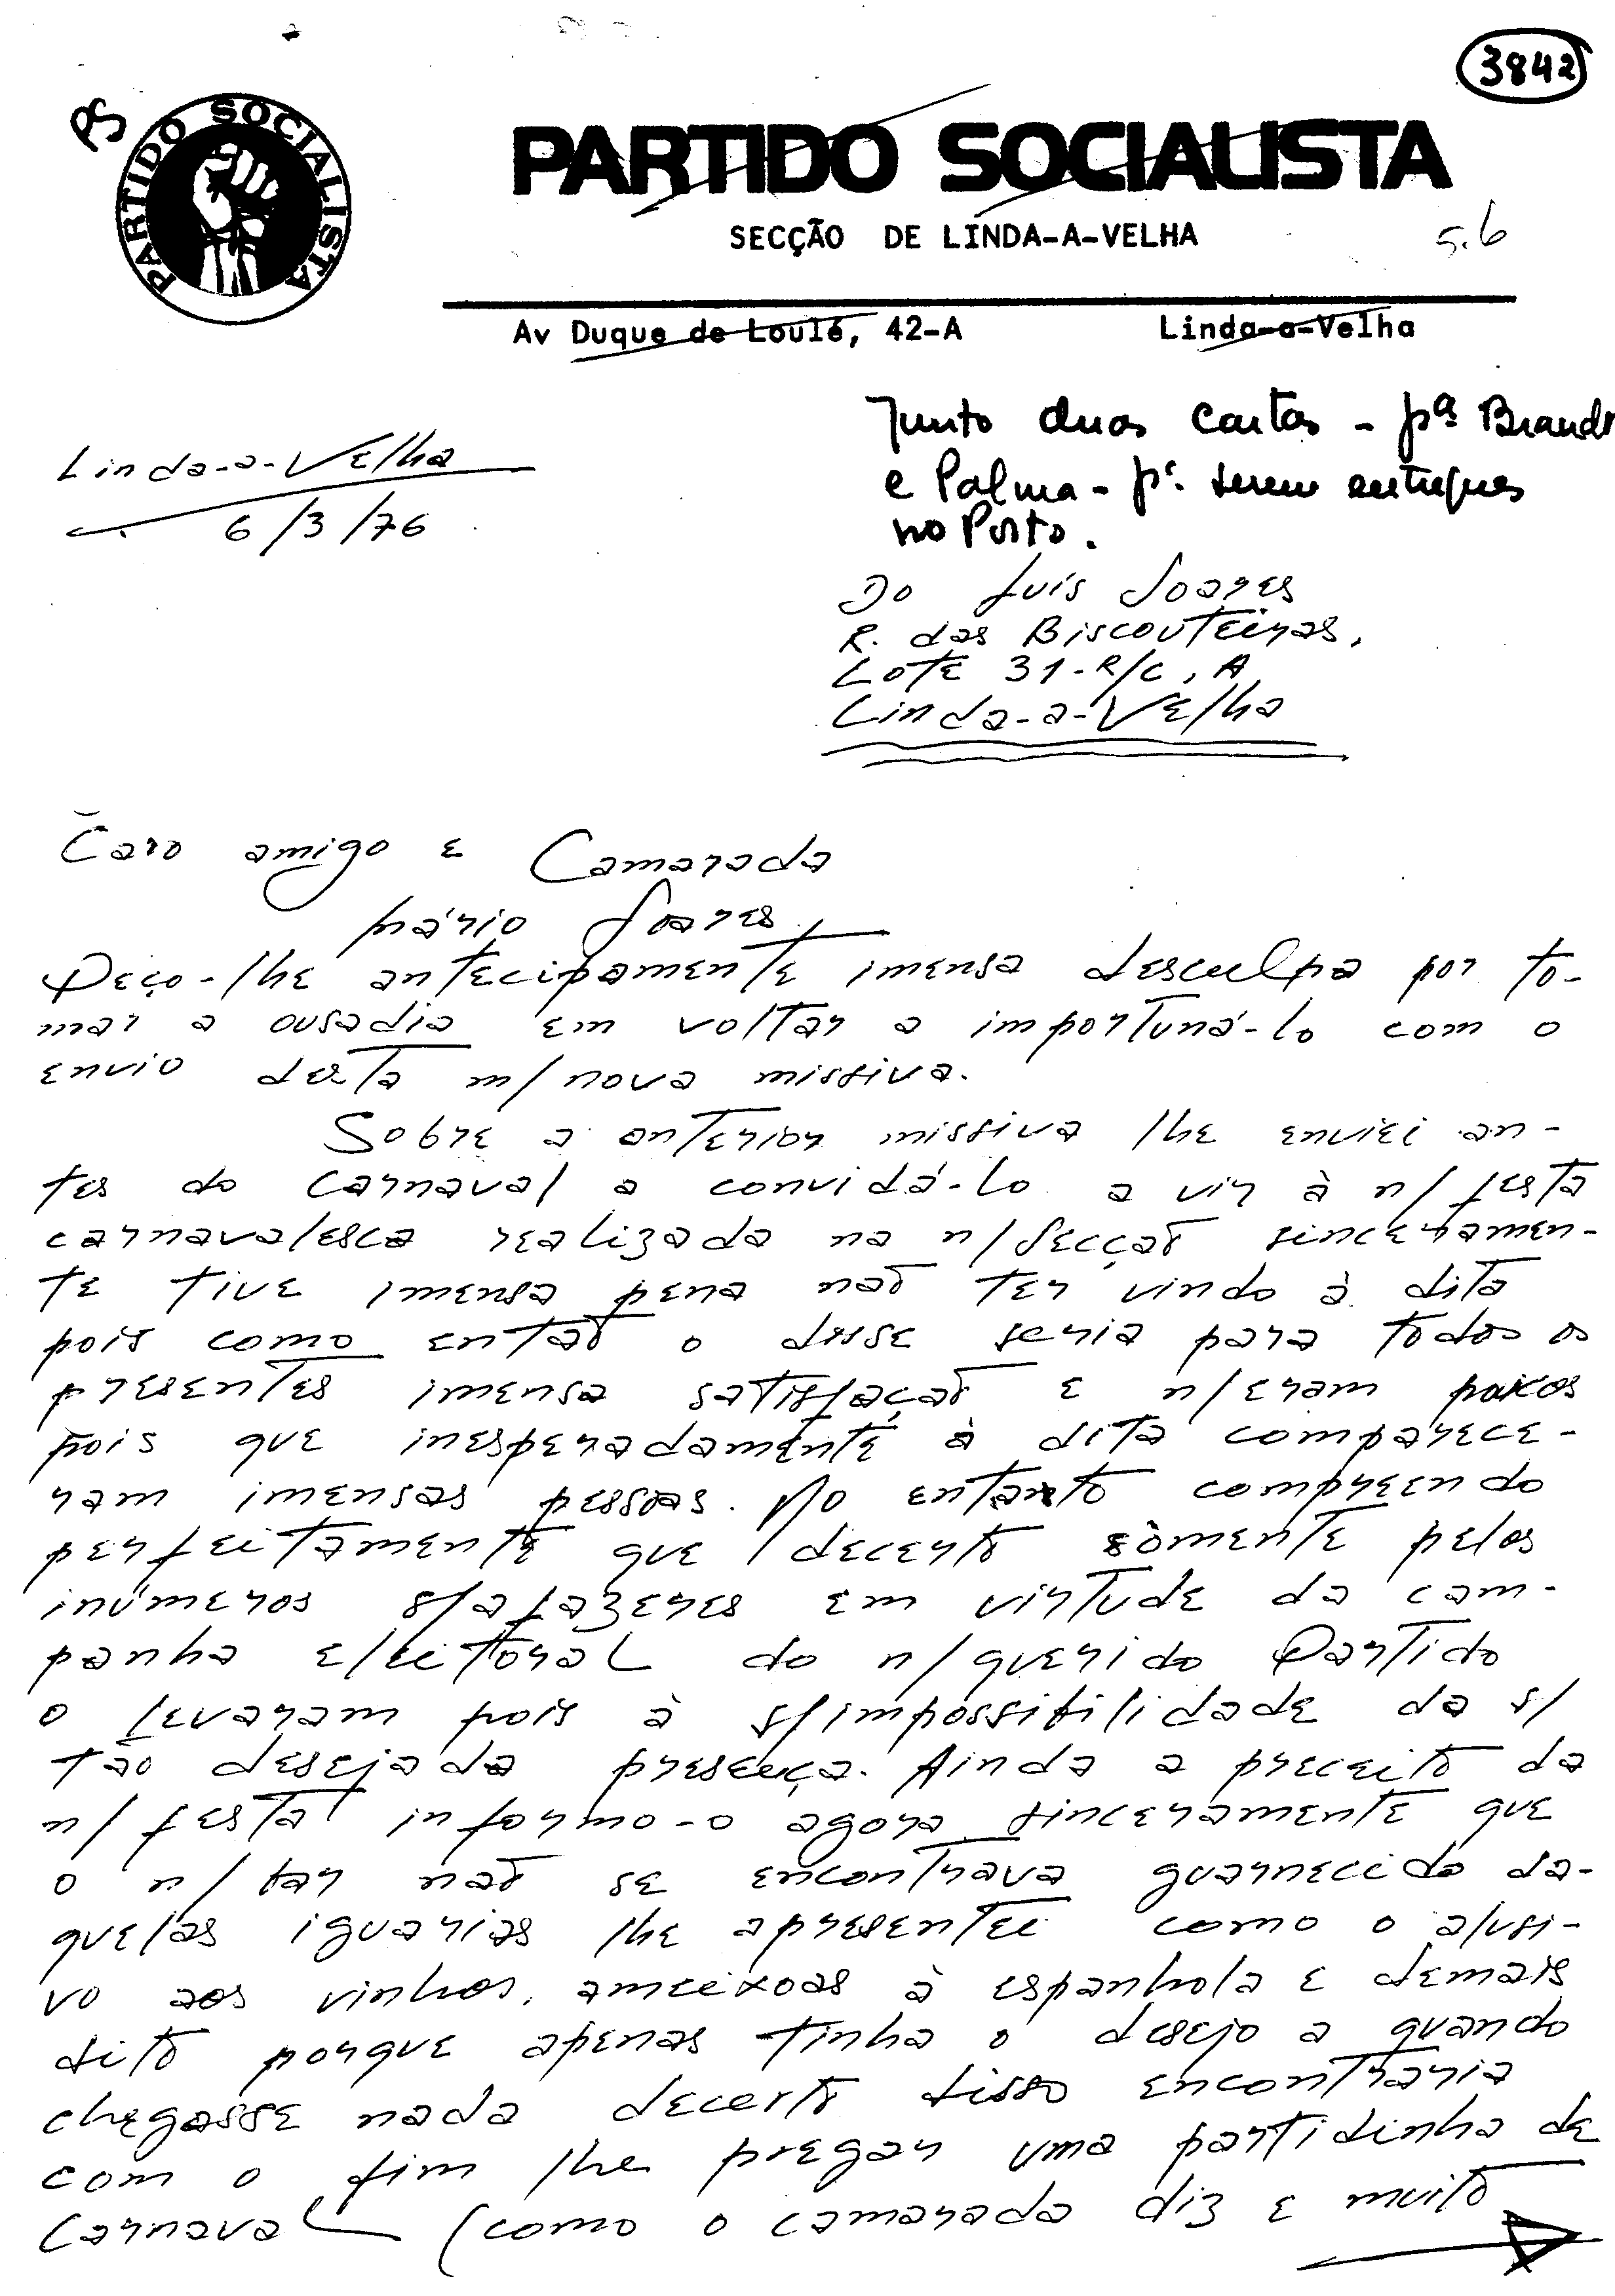 3842
PS
PARTIDO SOCIALISTA
PARTIDO SOCIALISTA
SECÇÃO DE LINDA-A-VELHA
5.6
Av Duque de Loulé, 42-A Linda-a-Velha
Junto duas cartas - pª Brandt
e Palma - pª. serem entregues
no Porto.
Linda-a-Velha
6/3/76
Do Luís Soares
R. das Biscouteiras,
Lote 31-R/C, A
Linda-a-Velha
Caro amigo e Camarada
Mário Soares,
Peço-lhe antecipamente imensa desculpa por to-
mar a ousadia em voltar a importuná-lo com o
envio desta m/ nova missiva.
Sobre a anterior missiva lhe enviei an-
tes do Carnaval a convidá-lo a vir à n/ festa
carnavalesca realizada na n/ Secção sinceramen-
te tive imensa pena não ter vindo à dita
pois como então o disse seria para todos os
presentes imensa satisfação e n/ eram poucos
pois que inesperadamente à dita comparece-
ram imensas pessoas. No entanto compreendo
perfeitamente que decerto sòmente pelos
inúmeros s/ afazeres em virtude da cam-
panha eleitoral do n/ querido Partido
o levaram pois à s/ impossibilidade da s/
tão desejada presença. Ainda a preceito da
n/ festa informo-o agora sinceramente que
o n/ bar não se encontrava guarnecido da-
quelas iguarias lhe apresentei como o alusi-
vo aos vinhos, ameixoas à espanhola e demais
dito porque apenas tinha o desejo a quando
chegasse nada decerto disso encontraria
com o fim lhe pregar uma partidinha de
Carnaval (como o camarada diz e muito